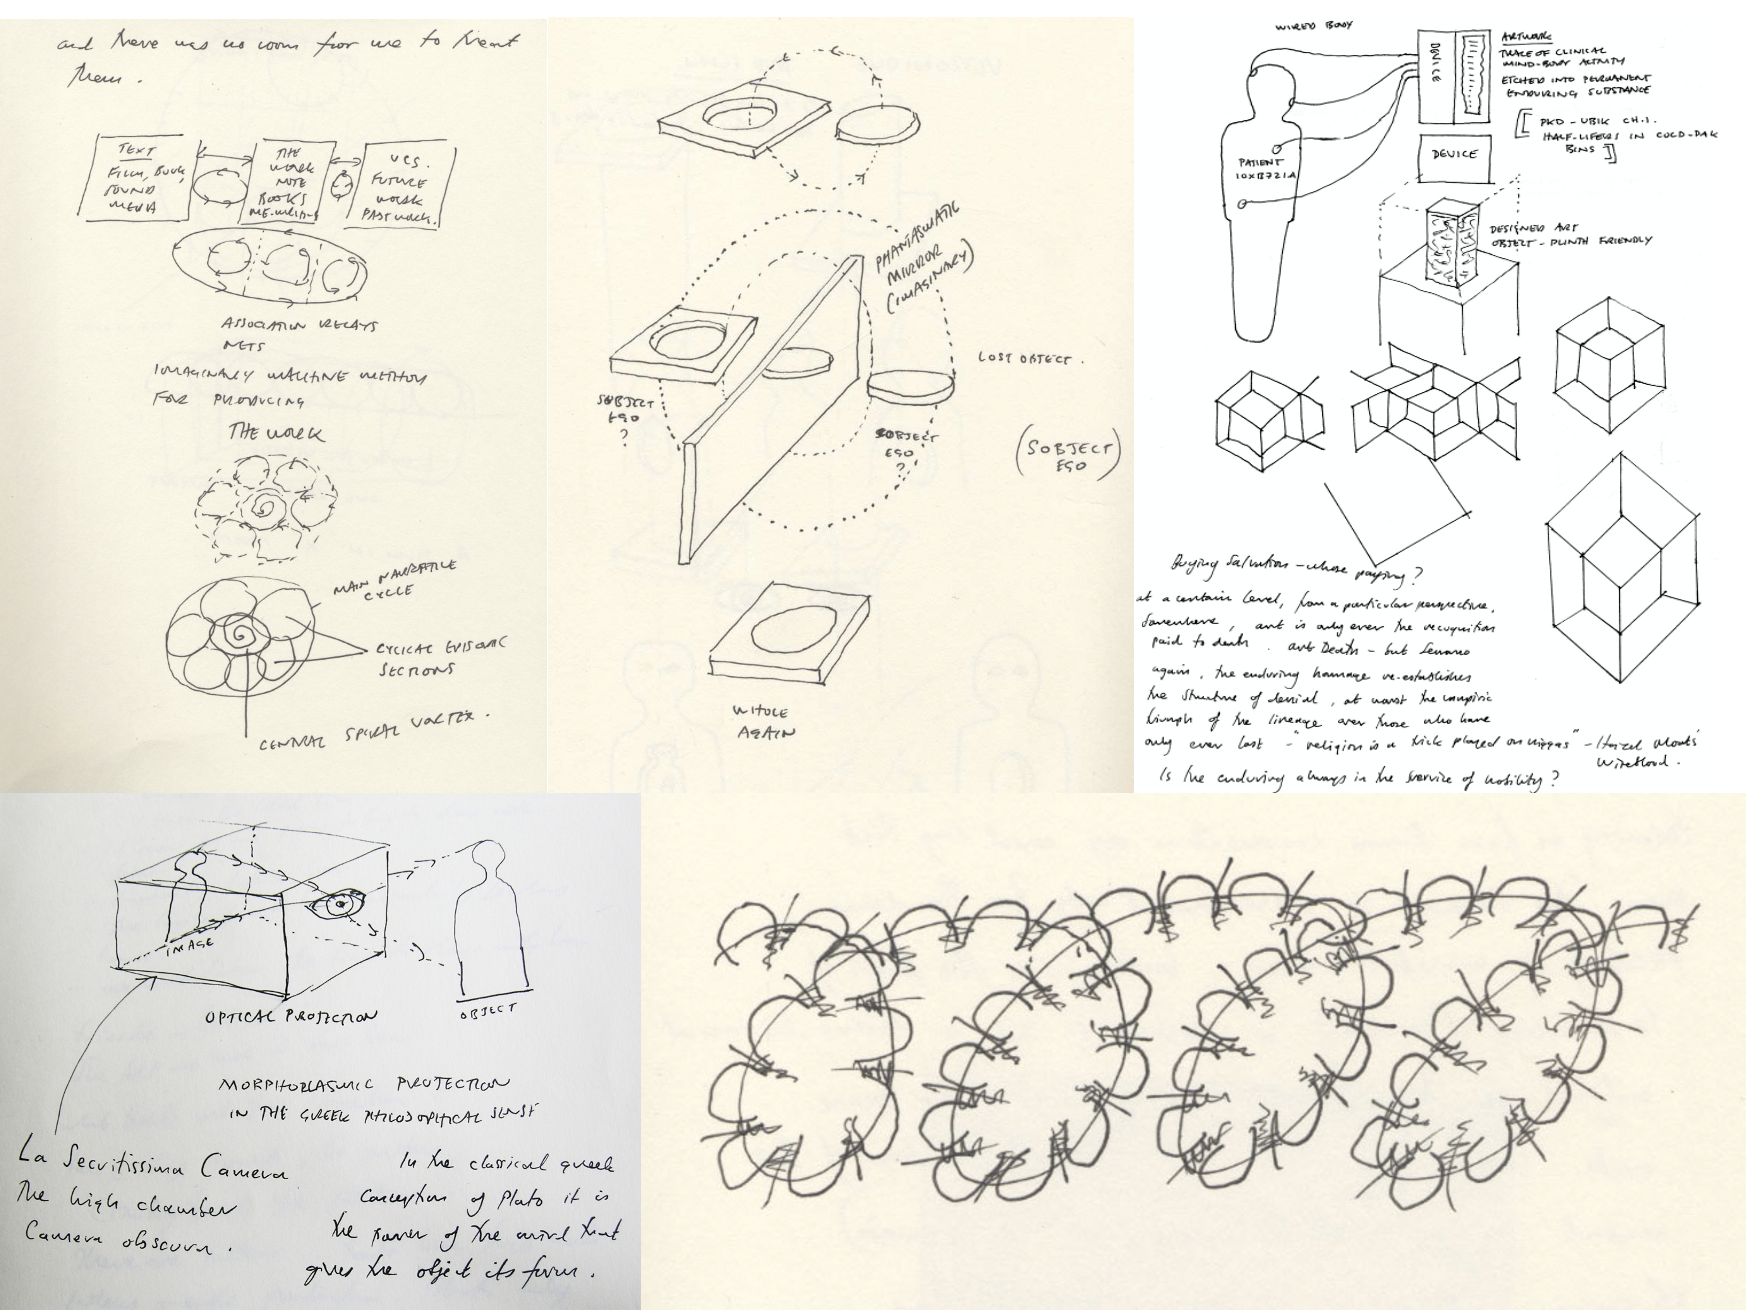 and there was no room for me to treat
them.
TEXT
FILM, BOOK,
SOUND
MEDIA
THE
WORK
NOTE
BOOKS
VCS.
FUTURE
WORK
PAST WORK.
ASSOCIATION RELAYS
NETS
IMAGINARY MACHINE METHOD
FOR PRODUCING
THE WORK
MAIN NARRATIVE
CYCLE
CYCLICAL EPISODIC
SECTIONS
CENTRAL SPIRAL VORTEX.
PHANTASMATIC
MIRROR
(IMAGINARY)
LOST OBJECT.
SUBJECT
EGO
?
SUBJECT
EGO
?
(SUBJECT
EGO)
WHOLE
AGAIN
WIRED BODY
DEVICE
ARTWORK
TRACE OF CLINICAL
MIND-BODY ACTIVITY
ETCHED INTO PERMANENT
ENDURING SUBSTANCE
[PKD - UBIK CH.1.
HALF-LIFERS IN COLD-PAK
BINS]
PATIENT
10XB721A
DEVICE
DESIGNED ART
OBJECT - PLINTH FRIENDLY
Buying Salvation - whose paying?
at a certain level, from a particular perspective,
somewhere, art is only ever the recognition
paid to death. art Death - but
again, the enduring homage re-establishes
the structure of denial, at worst the vampiric
triumph of the lineage over those who have
only ever lost - "religion is a trick played on niggas" - Hazel Motes
Wiseblood.
Is the enduring always in the service of nobility?
IMAGE
OPTICAL PROJECTION
OBJECT
MORPHOPLASMIC PROJECTION
IN THE GREEK PHILOSOPHICAL SENSE
La Securitissima Camera
The high chamber
Camera obscura.
In the classical greek
conception of Plato it is
the power of the mind that
gives the object its form.